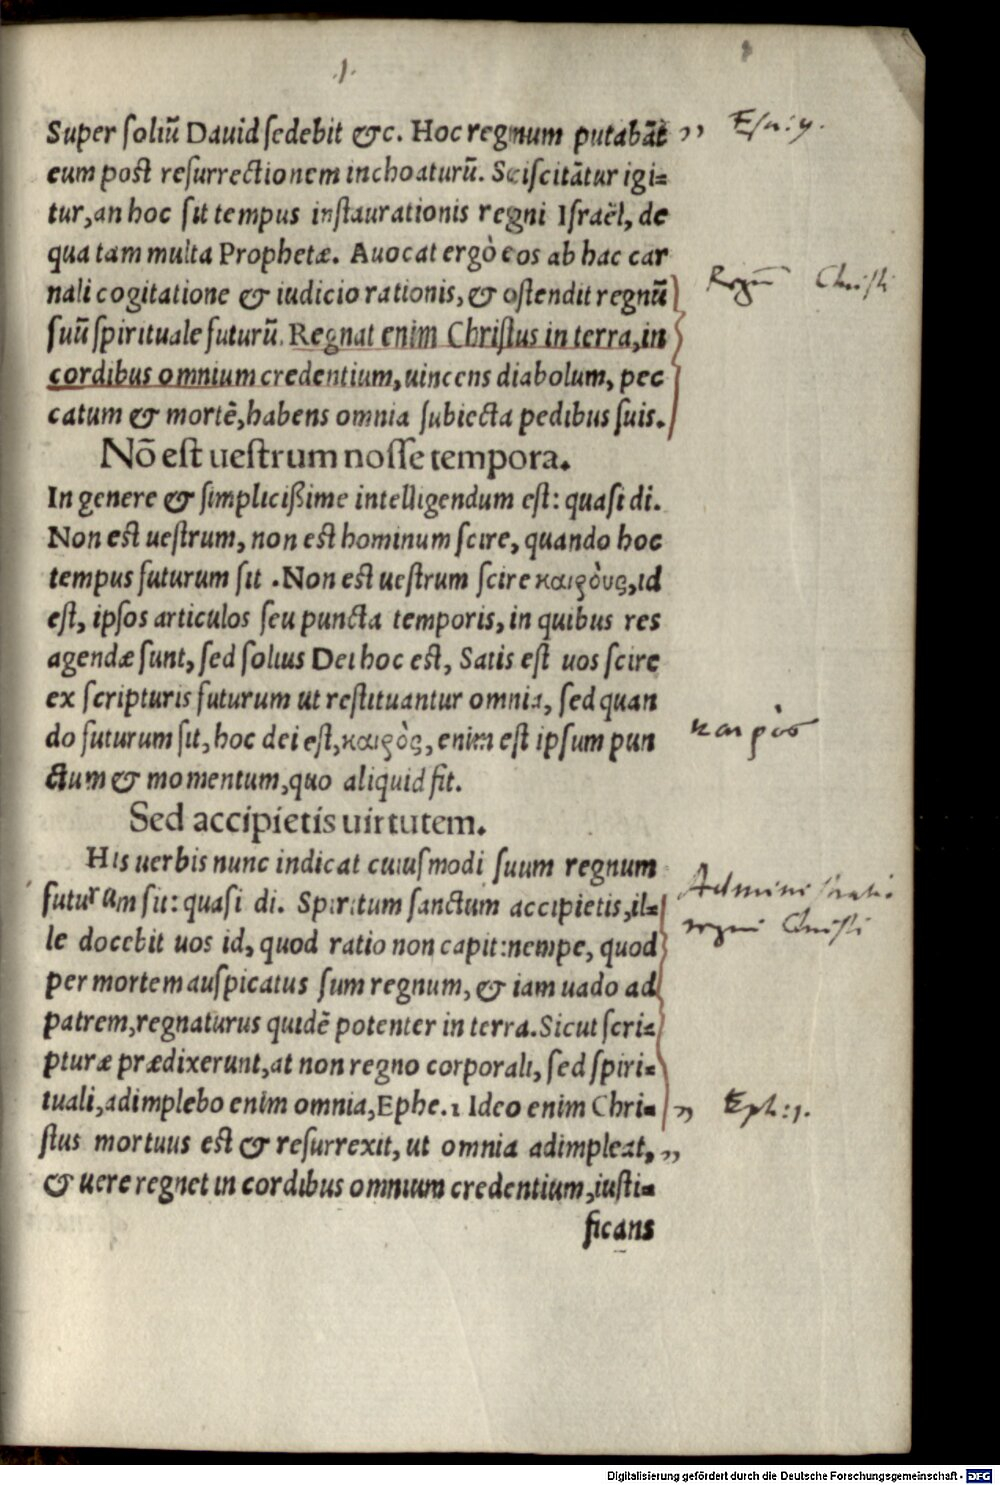 .1.
Super soliū Dauid sedebit &c. Hoc regnum putabāt ,, Esa: 9.
eum post resurrectionem inchoaturū. Sciscitātur igi=
tur, an hoc sit tempus instaurationis regni Israël, de
qua tam multa Prophetæ. Auocat ergò eos ab hac car
nali cogitatione & iudicio rationis, & ostendit regnū Regnū Christi
suū spirituale futurū. Regnat enim Christus in terra, in
cordibus omnium credentium, uincens diabolum, pec
catum & mortē, habens omnia subiecta pedibus suis.
Nō est uestrum nosse tempora.
In genere & simplicißime intelligendum est: quasi di.
Non est uestrum, non est hominum scire, quando hoc
tempus futurum sit . Non est uestrum scire καιρὸυς, id
est, ipsos articulos seu puncta temporis, in quibus res
agendæ sunt, sed solius Dei hoc est, Satis est uos scire
ex scripturis futurum ut restituantur omnia, sed quan
do futurum sit, hoc dei est, καιρὸς, enim est ipsum pun καιρὸς
ctum & momentum, quo aliquid fit.
Sed accipietis uirtutem.
His uerbis nunc indicat cuiusmodi suum regnum
futurum sit: quasi di. Spiritum sanctum accipietis, il= Administratio
le docebit uos id, quod ratio non capit: nempe, quod regni Christi
per mortem auspicatus sum regnum, & iam uado ad
patrem, regnaturus quidē potenter in terra. Sicut scri=
pturæ prædixerunt, at non regno corporali, sed spiri=
tuali, adimplebo enim omnia, Ephe. 1 Ideo enim Chri= ,, Eph: 1.
stus mortuus est & resurrexit, ut omnia adimpleat, ,,
& uere regnet in cordibus omnium credentium, iusti=
ficans
Digitalisierung gefördert durch die Deutsche Forschungsgemeinschaft - DFG